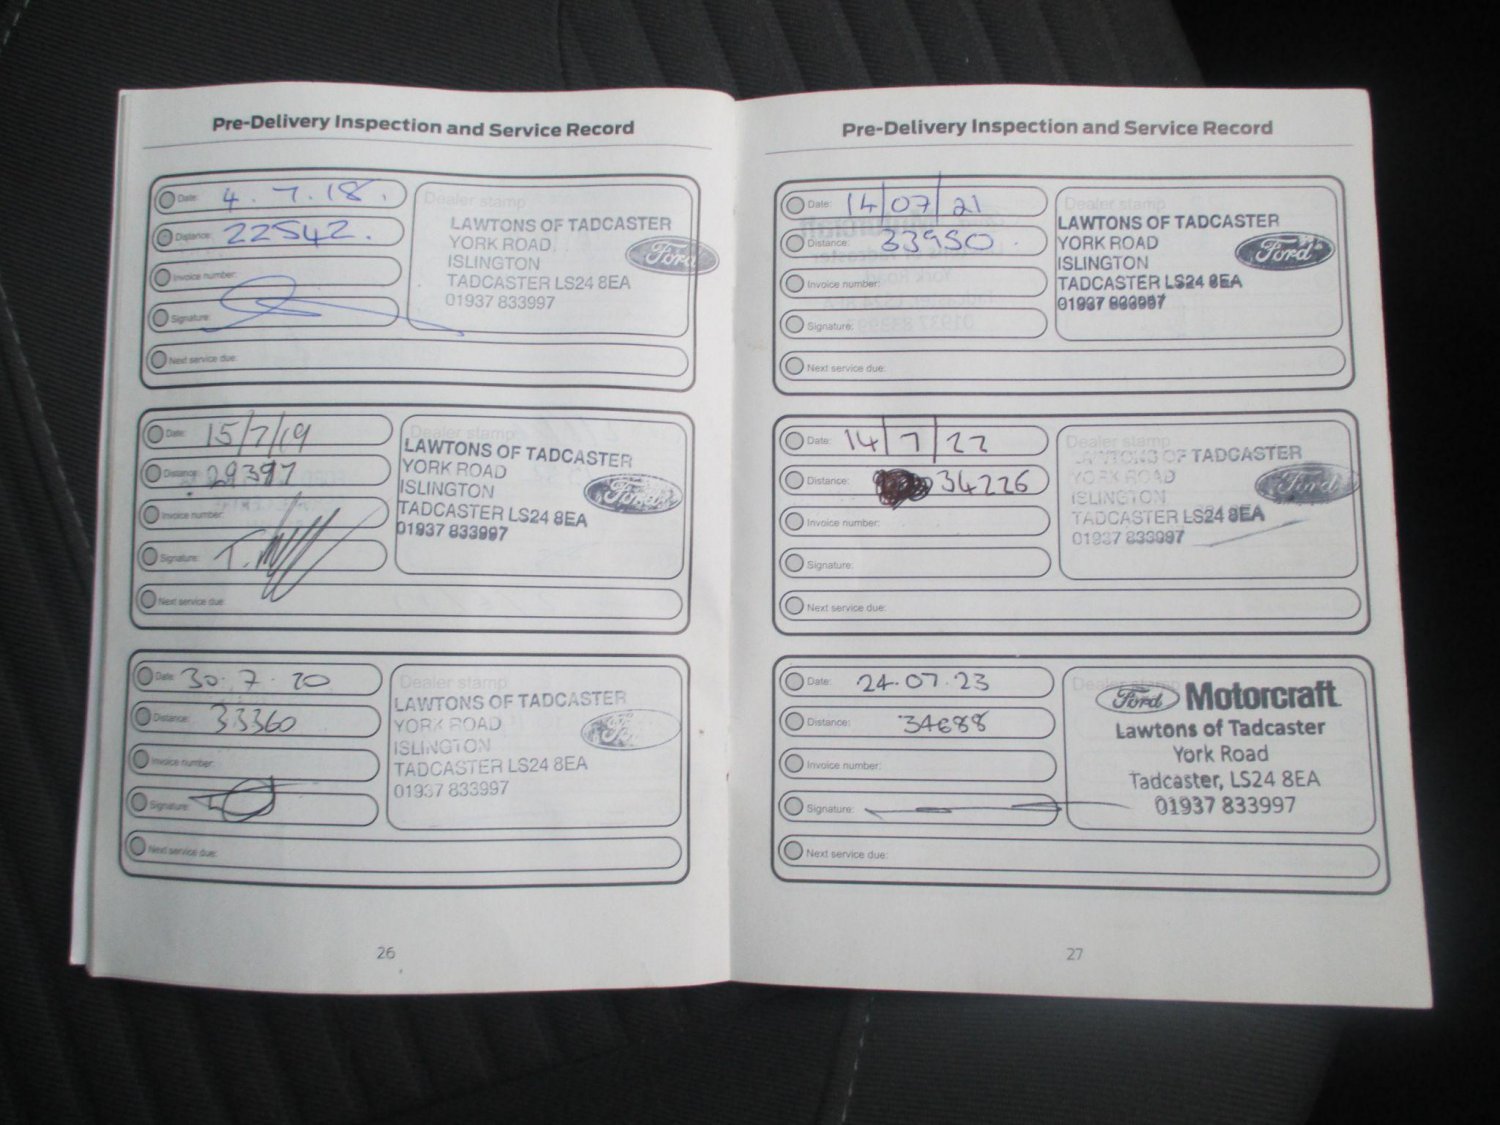 Pre-Delivery Inspection and Service Record
Date: 4.7.18.
Distance: 22542.
Invoice number:
Signature:
Next service due:
Dealer stamp
LAWTONS OF TADCASTER
YORK ROAD
ISLINGTON
TADCASTER LS24 8EA
01937 833997
Ford
Date: 15/7/19
Distance: 29397
Invoice number:
Signature:
Next service due:
Dealer stamp
LAWTONS OF TADCASTER
YORK ROAD
ISLINGTON
TADCASTER LS24 8EA
01937 833997
Ford
Date: 30.7.20
Distance: 33360
Invoice number:
Signature:
Next service due:
Dealer stamp
LAWTONS OF TADCASTER
YORK ROAD
ISLINGTON
TADCASTER LS24 8EA
01937 833997
26
Pre-Delivery Inspection and Service Record
Date: 14/07/21
Distance: 33950.
Invoice number:
Signature:
Next service due:
Dealer stamp
LAWTONS OF TADCASTER
YORK ROAD
ISLINGTON
TADCASTER LS24 8EA
01937 833997
Ford
Date: 14/7/22
Distance: 34226
Invoice number:
Signature:
Next service due:
Dealer stamp
LAWTONS OF TADCASTER
YORK ROAD
ISLINGTON
TADCASTER LS24 8EA
01937 833997
Ford
Date: 24.07.23
Distance: 34688
Invoice number:
Signature:
Next service due:
Dealer stamp
Ford Motorcraft
Lawtons of Tadcaster
York Road
Tadcaster, LS24 8EA
01937 833997
27